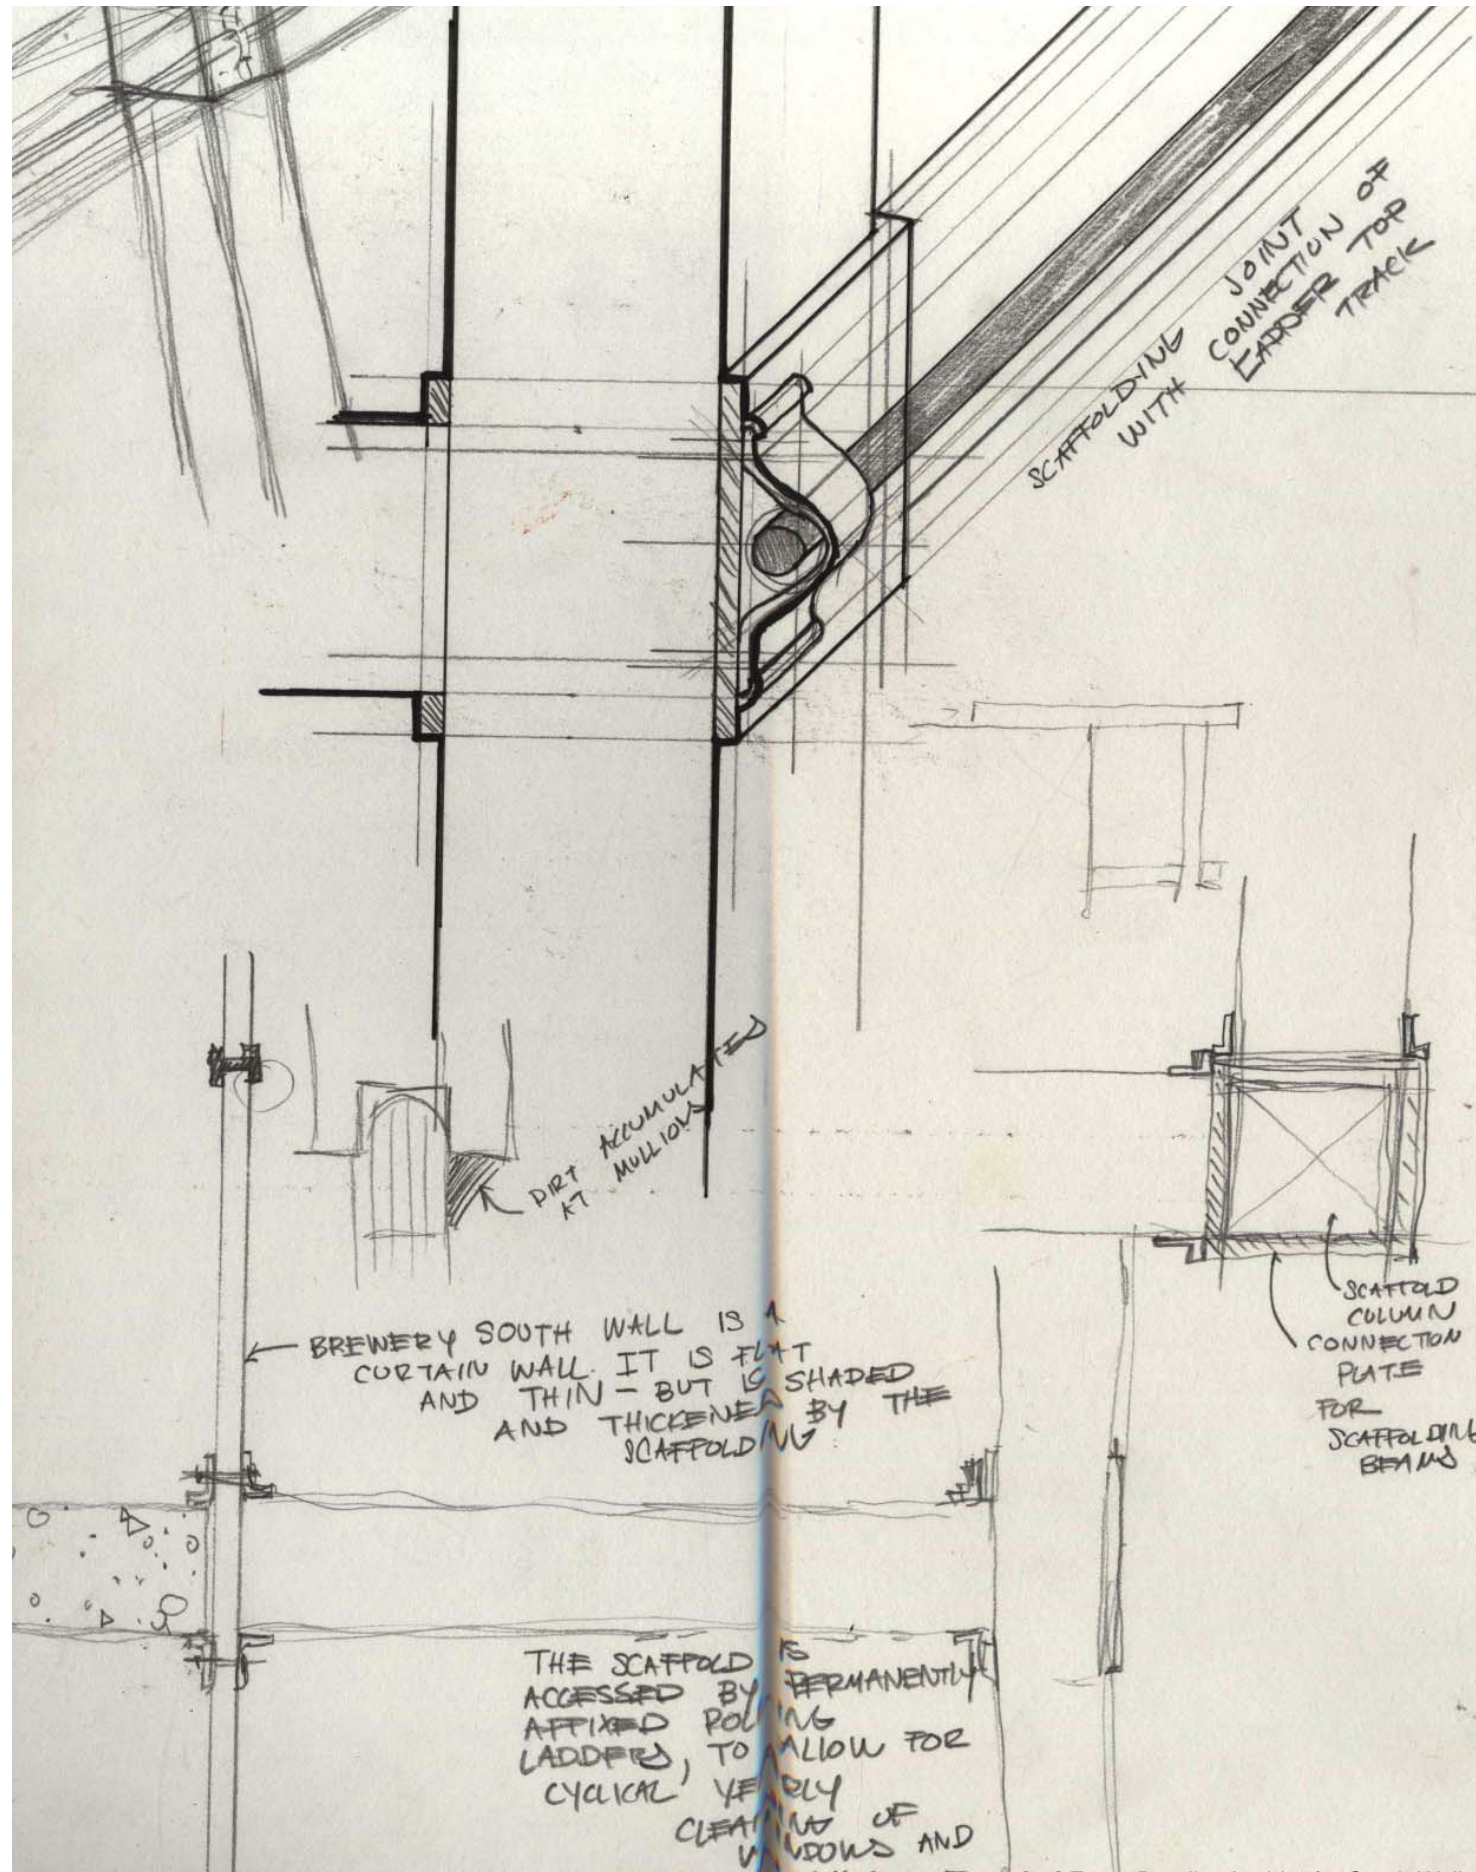 SCAFFOLDING
WITH
JOINT
CONNECTION OF
LADDER TOP
TRACK
DIRT ACCUMULATED
AT MULLIONS
BREWERY SOUTH WALL IS A
CURTAIN WALL. IT IS FLAT
AND THIN – BUT IS SHADED
AND THICKENED BY THE
SCAFFOLDING
SCAFFOLD
COLUMN
CONNECTION
PLATE
FOR
SCAFFOLDING
BEAMS
THE SCAFFOLD IS
ACCESSED BY PERMANENTLY
AFFIXED ROLLING
LADDERS, TO ALLOW FOR
CYCLICAL YEARLY
CLEANING OF
WINDOWS AND